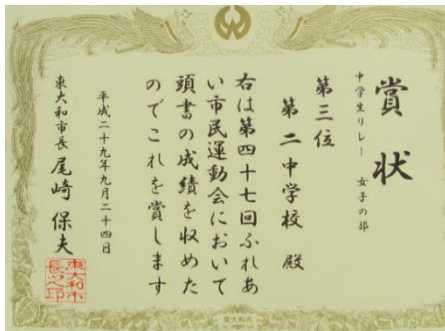 賞状
中学生リレー 女子の部
第三位
第二中学校 殿
右は第四十七回ふれあ
い市民運動会において
頭書の成績を収めた
のでこれを賞します
平成二十九年九月二十四日
東大和市長 尾崎保夫
東大和市
長之印
東大和市